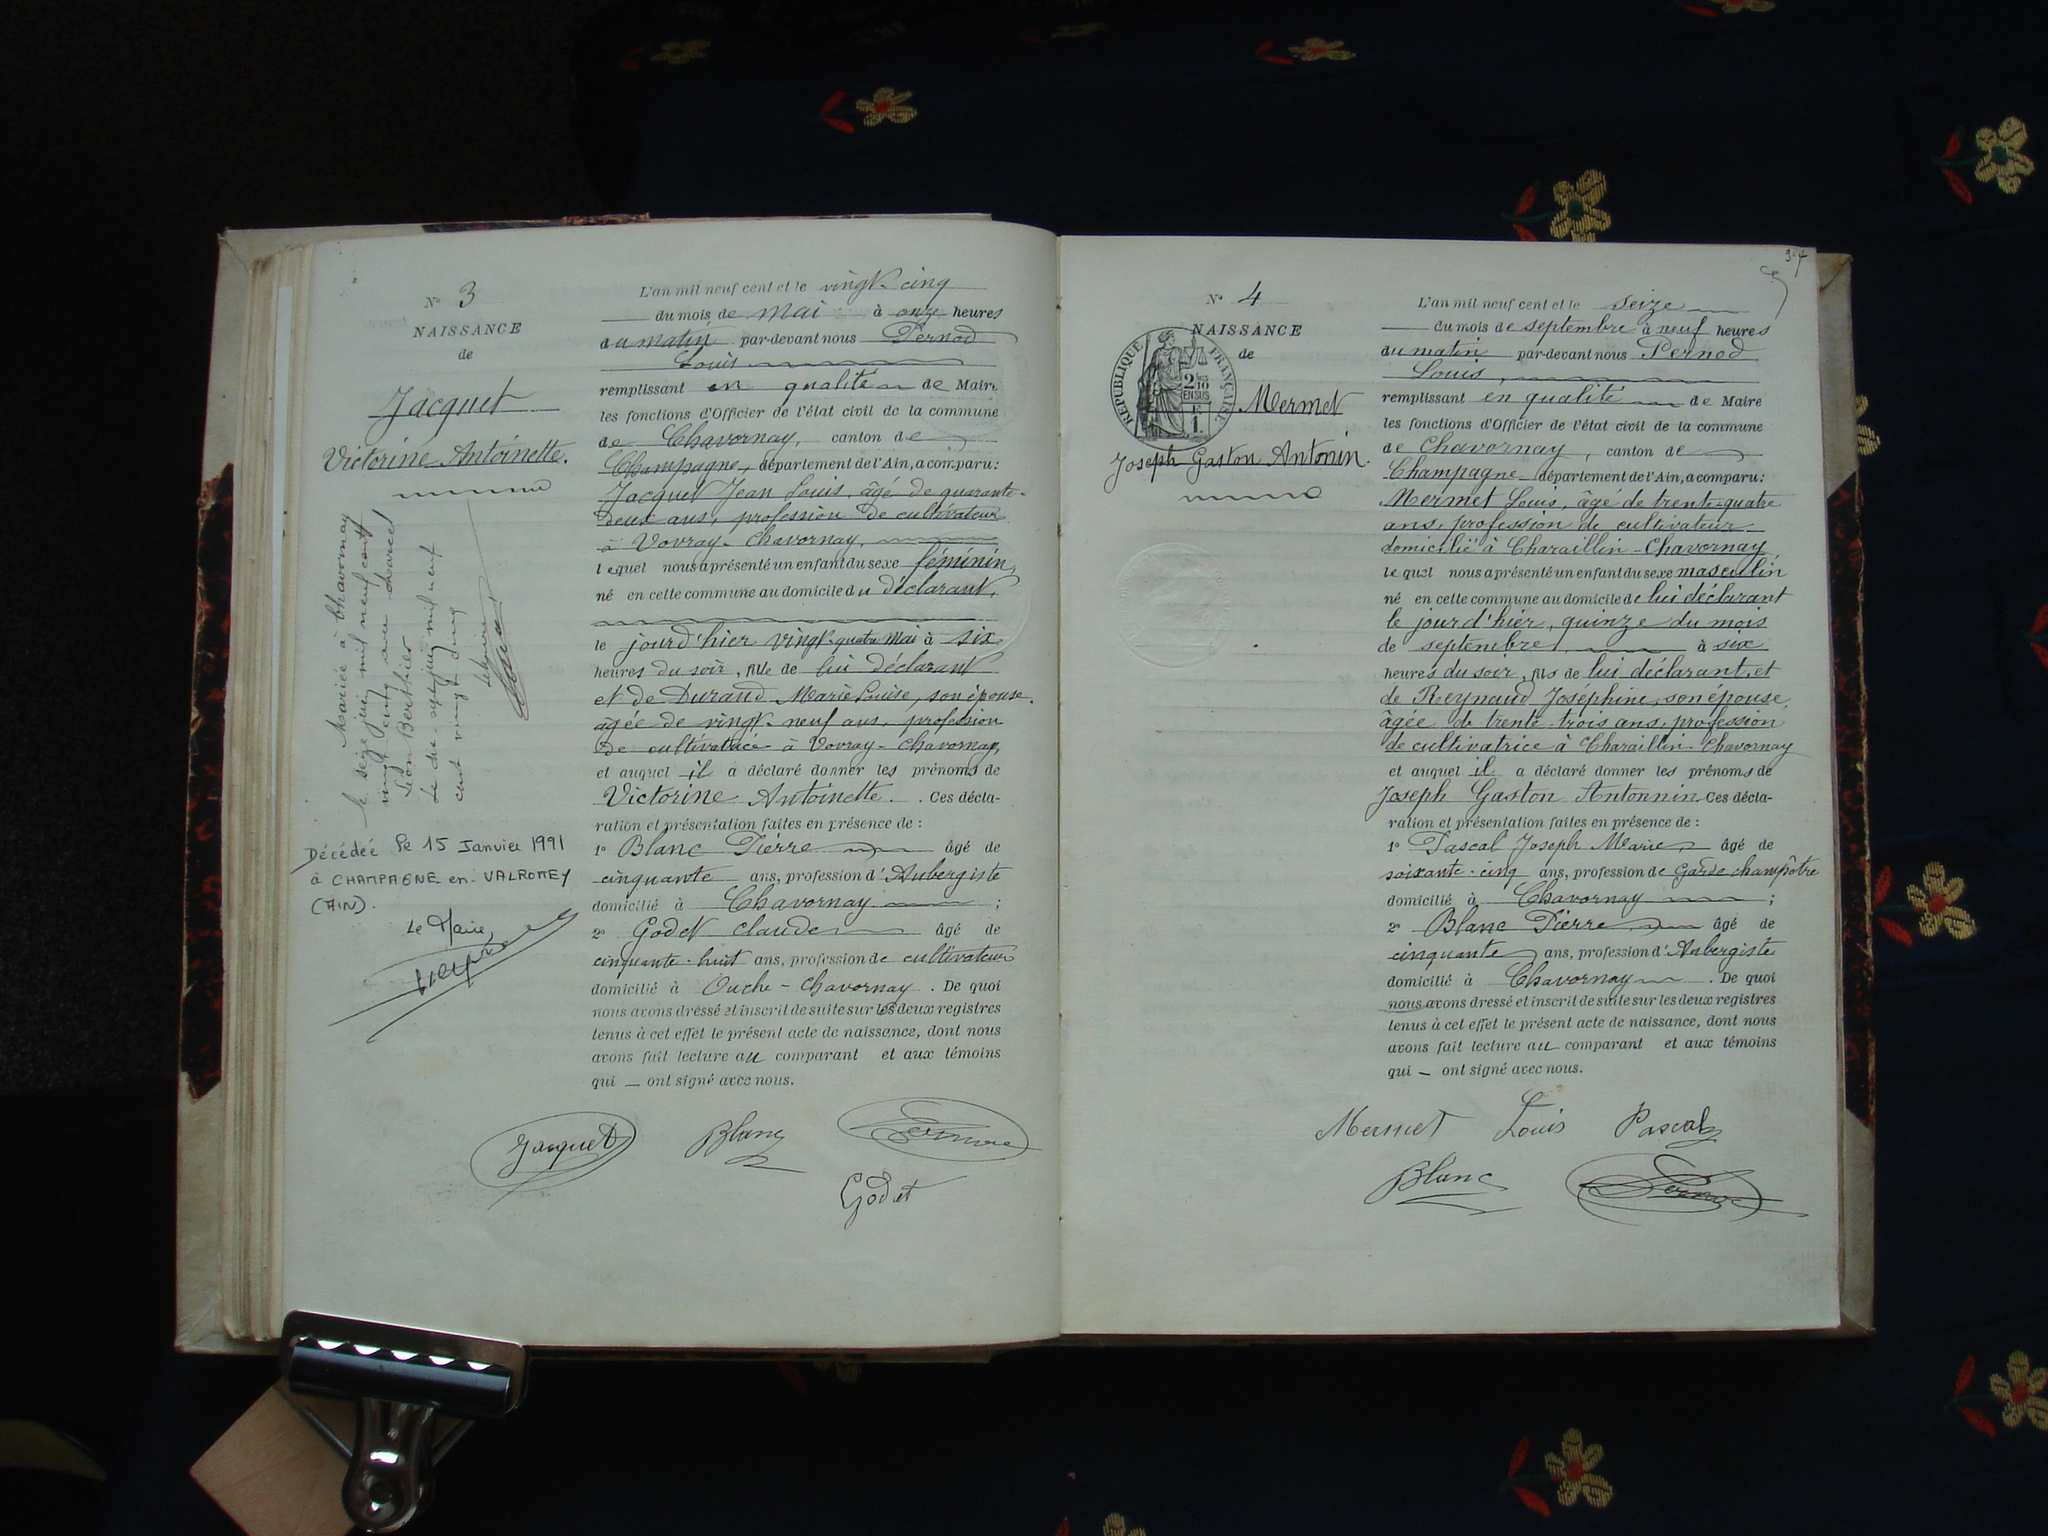 N° 3
NAISSANCE
de
Jacquet
Victorine Antoinette.
Mariée à Chavornay
le seize juin mil neuf cent
vingt cinq au Marcel
Léon Berthier
Le dix-sept juin mil neuf
cent vingt cinq
Le Maire
Décédée le 15 Janvier 1991
à CHAMPAGNE-en-VALROMEY
(AIN).
Le Maire,
L'an mil neuf cent et le vingt-cinq
du mois de mai à onze heures
du matin par-devant nous Pernod
Louis
remplissant en qualité de Maire
les fonctions d'Officier de l'état civil de la commune
de Chavornay, canton de
Champagne, département de l'Ain, a comparu:
Jacquet Jean Louis, âgé de quarante-
deux ans, profession de cultivateur
à Vovray-Chavornay,
lequel nous a présenté un enfant du sexe féminin,
né en cette commune au domicile du déclarant,
le jourd'hier vingt-quatre mai à six
heures du soir, fille de lui déclarant
et de Durand Marie Louise, son épouse.
âgée de vingt-neuf ans, profession
de cultivatrice à Vovray-Chavornay,
et auquel il a déclaré donner les prénoms de
Victorine Antoinette. Ces décla-
ration et présentation faites en présence de :
1° Blanc Pierre âgé de
cinquante ans, profession d'Aubergiste
domicilié à Chavornay ;
2° Godet Claude âgé de
cinquante-huit ans, profession de cultivateur
domicilié à Ouche-Chavornay. De quoi
nous avons dressé et inscrit de suite sur les deux registres
tenus à cet effet le présent acte de naissance, dont nous
avons fait lecture au comparant et aux témoins
qui — ont signé avec nous.
Jacquet Blanc
Godet
N° 4
NAISSANCE
de
RÉPUBLIQUE FRANÇAISE
2/10
EN SUS
1.
Mermet
Joseph Gaston Antonin.
L'an mil neuf cent et le seize
du mois de septembre à neuf heures
du matin par-devant nous Pernod
Louis,
remplissant en qualité de Maire
les fonctions d'Officier de l'état civil de la commune
de Chavornay, canton de
Champagne département de l'Ain, a comparu:
Mermet Louis, âgé de trente-quatre
ans, profession de cultivateur
domicilié à Charaillin-Chavornay
lequel nous a présenté un enfant du sexe masculin
né en cette commune au domicile de lui déclarant
le jour d'hier, quinze du mois
de septembre, à six
heures du soir, fils de lui déclarant, et
de Reynaud Joséphine, son épouse,
âgée de trente trois ans, profession
de cultivatrice à Charaillin-Chavornay
et auquel il a déclaré donner les prénoms de
Joseph Gaston Antonnin. Ces décla-
ration et présentation faites en présence de :
1° Pascal Joseph Marie âgé de
soixante-cinq ans, profession de Garde champêtre
domicilié à Chavornay ;
2° Blanc Pierre âgé de
cinquante ans, profession d'Aubergiste
domicilié à Chavornay. De quoi
nous avons dressé et inscrit de suite sur les deux registres
tenus à cet effet le présent acte de naissance, dont nous
avons fait lecture au comparant et aux témoins
qui — ont signé avec nous.
Mermet Louis Pascal
Blanc